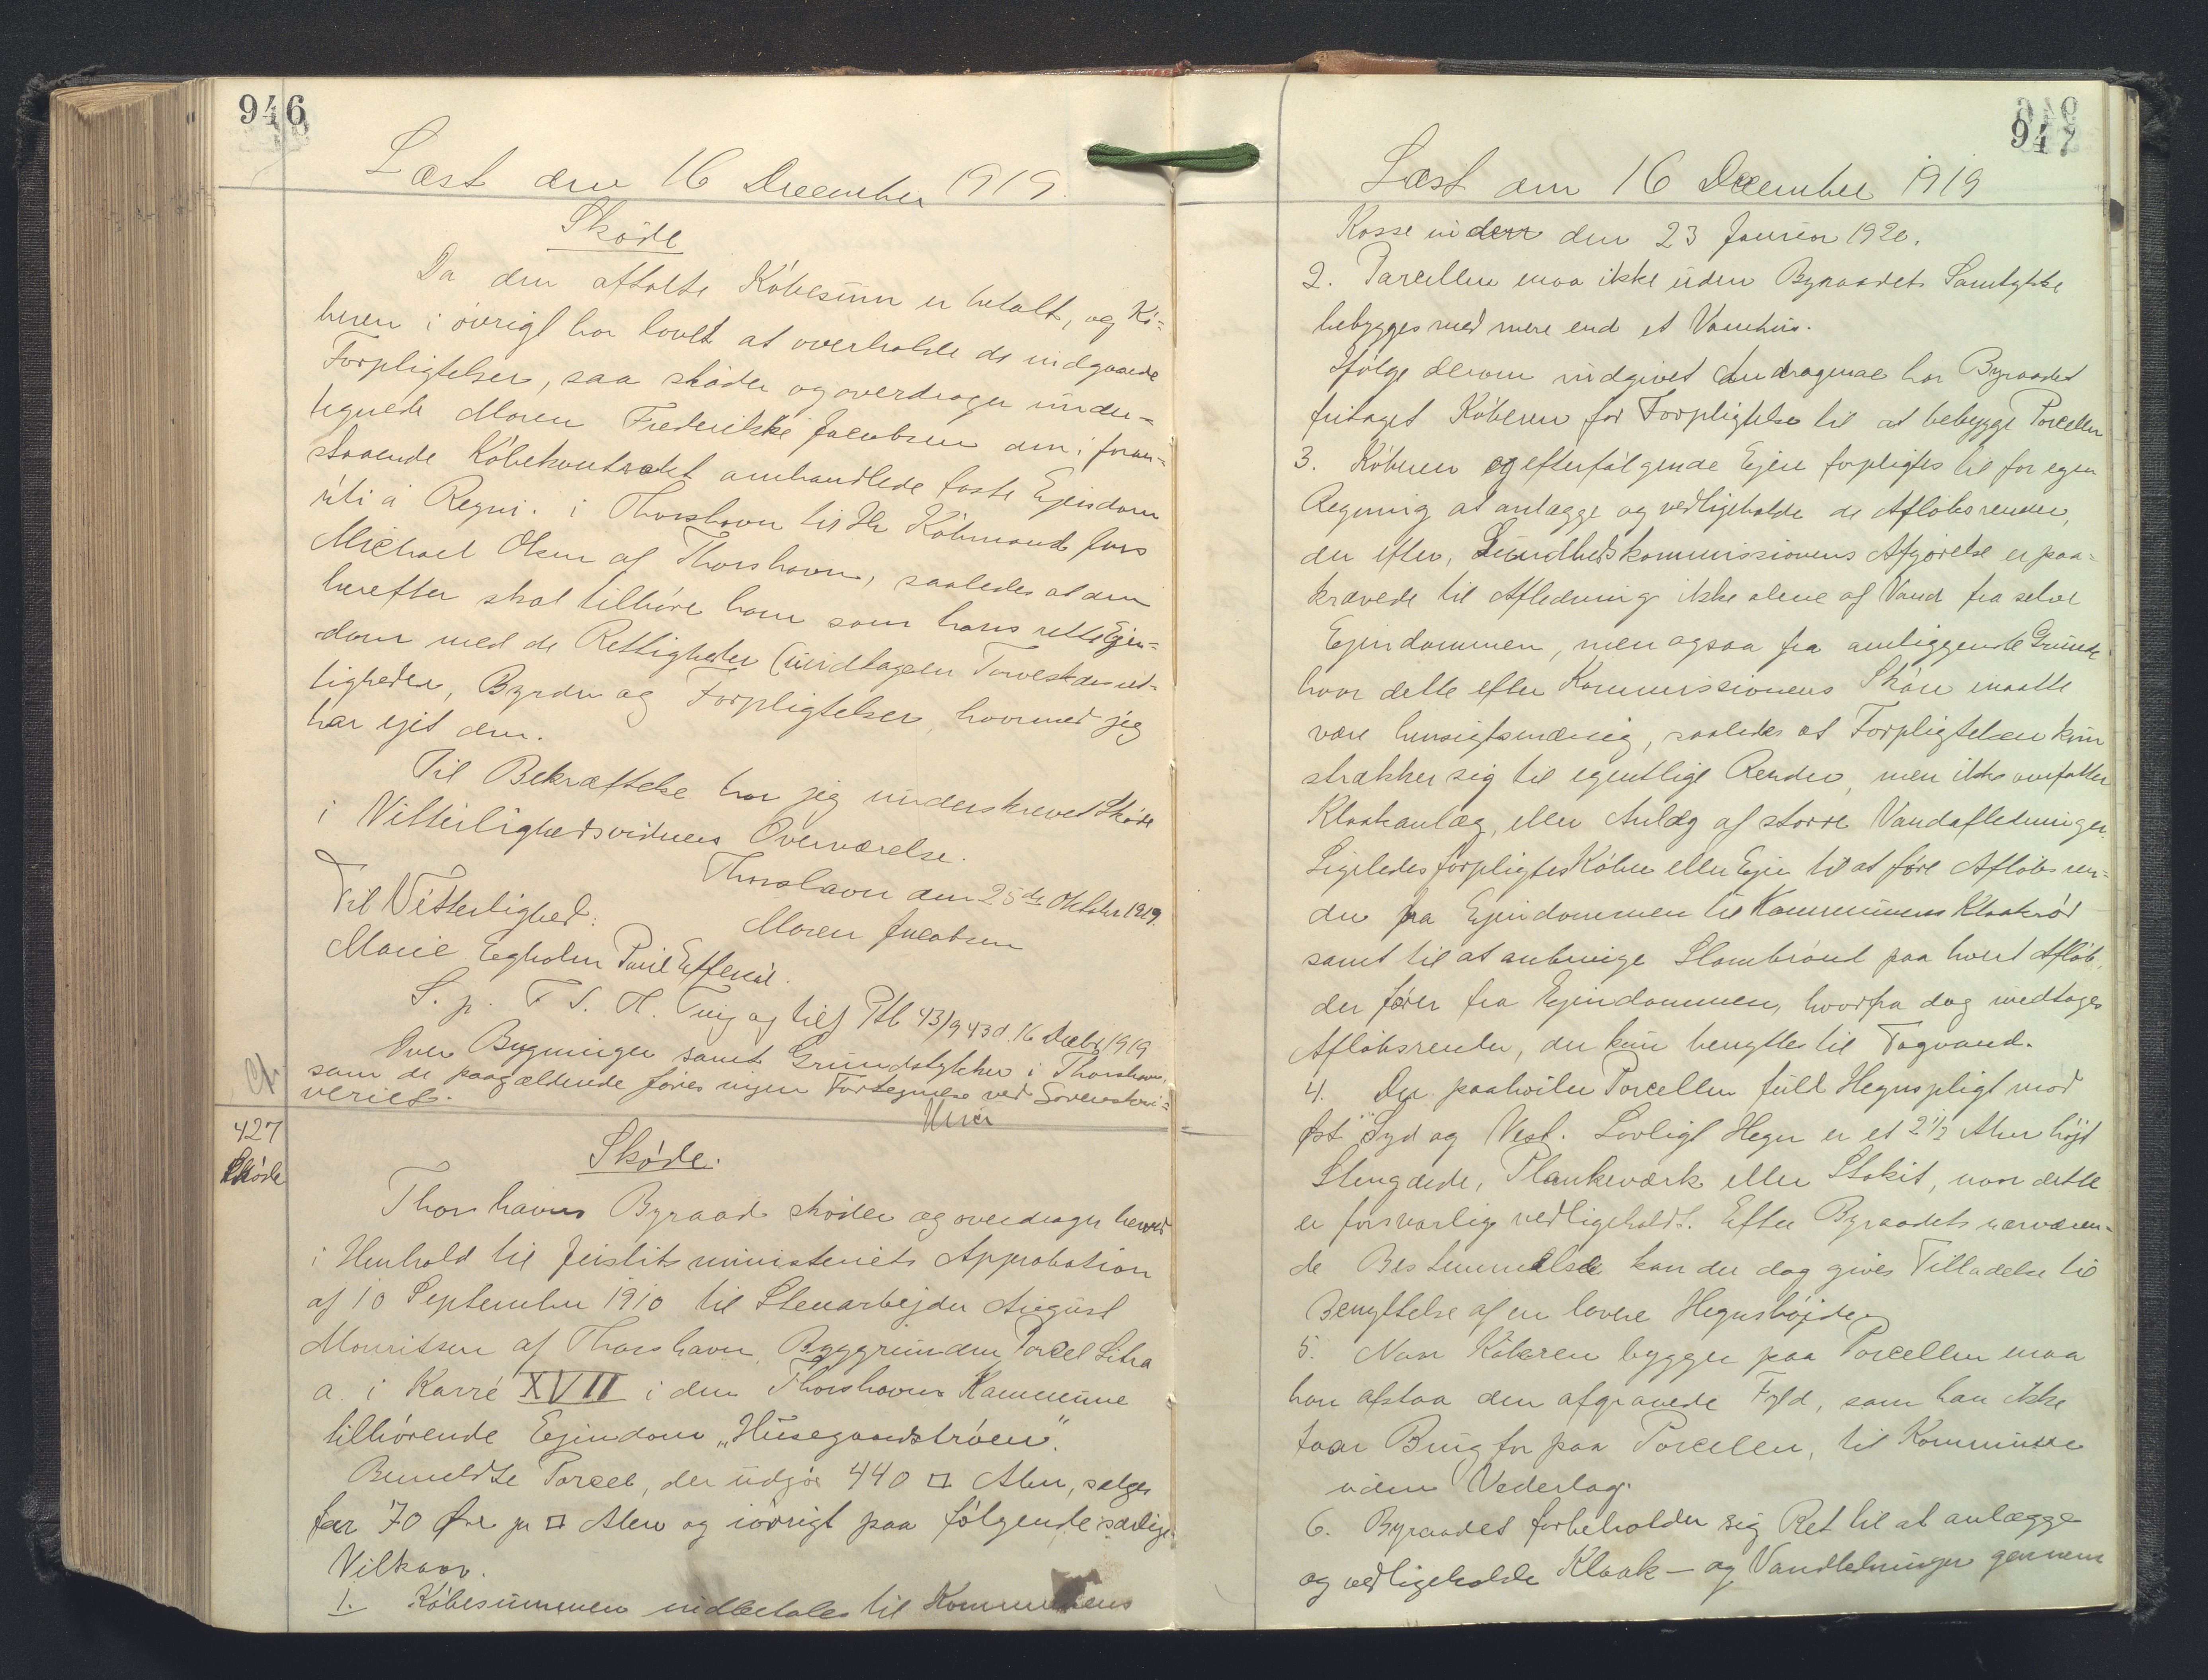 946
Læst den 16 December 1919.
Skøde
Da den aftalte Købesum er betalt, og Kø=
beren i øvrigt har lovet at overholde de indgaaede
Forpligtelser, saa skøder og overdrager under=
tegnede Maren Frederikke Jacobsen den i foran=
staaende Købekontrakt omhandlede faste Ejendom
uti á Regni. i Thorshavn til Hr Købmand Jens
Michael Olsen af Thorshavn, saaledes at den
herefter skal tilhøre ham som hans rette Ejen=
dom med de Rettigheder (undtagen Torveskæsret=
tigheder, Byrder og Forpligtelser, hvormed jeg
har ejet den.
Til Bekræftelse har jeg underskrevet Skøde
i Vitterlighedsvidners Overværelse.
Thorshavn den 25de Oktober 1919.
Maren Jacobsen
Til Vitterlighed:
Marie Egholm Poul Effersøe.
S. p. F. S. H. Ting og tilf Ptl 43/943 d. 16 Decbr 1919
Over Bygninger samt Grundstykker i Thorshavn,
som de paagældende føres ingen Fortegnelse ved Sorenskri=
veriet.
427
Skøde
Skøde.
Thorshavns Byraad skøder og overdrager herved
i Henhold til Justitsministeriets Approbation
af 10 September 1910 til Stenarbejder August
Mouritsen af Thorshavn, Byggrunden Parcel Litra
a. i Karré XVII i den Thorshavns Kommune
tilhørende Ejendom „Husegaardstrøen".
Bemeldte Parcel, der udgør 440 □ Alen, sælges
for 70 Øre pr □ Alen og iøvrigt paa følgende særlige
Vilkaar.
1. Købesummen indbetales til Kommunens
947
Læst den 16 December 1919
Kasse inden den 23 Januar 1920.
2. Parcellen maa ikke uden Byraadets Samtykke
bebygges med mere end et Vaanhus.
Ifølge derom indgivet Andragende har Byraadet
fritaget Køberen for Forpligtelse til at bebygge Parcellen
3. Køberen og efterfølgende Ejere forpligtes til for egen
Regning at anlægge og vedligeholde de Afløbsrender,
der efter Sundhedskommissionens Afgørelse er paa=
krævede til Afledning ikke alene af Vand fra selve
Ejendommen, men ogsaa fra omliggende Grunde
hvor dette efter Kommissionens Skøn maatte
være hensigtsmæssig, saaledes at Forpligtelsen kun
strækker sig til egentlige Render, men ikke omfatter
Kloakanlæg, eller Anlæg af større Vandafledninger.
Ligeledes forpligtes Køber eller Ejer til at føre Afløbsren=
der fra Ejendommen til Kommunens Kloakrør
samt til at anbringe Slambrønd paa hvert Afløb,
der fører fra Ejendommen, hvorfra dog undtages
Afløbsrender, der kun benyttes til Tagvand.
4. Der paahviler Parcellen fuld Hegnspligt mod
Øst Syd og Vest. Lovligt Hegn er et 2 1/2 Alen højt
Stengærde, Plankeværk eller Stakit, naar dette
er forsvarlig vedligeholdt. Efter Byraadets nærværen=
de Bestemmelse kan der dog gives Tilladelse til
Benyttelse af en lavere Hegnshøjde
5. Naar Køberen bygger paa Parcellen maa
han afstaa den afgravede Fyld, som han ikke
faar Brug for paa Parcellen, til Kommunen
uden Vederlag.
6. Byraadet forbeholder sig Ret til at anlægge
og vedligeholde Kloak- og Vandledninger gennem